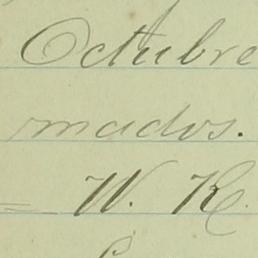 Octubre
mados.
= W. K.